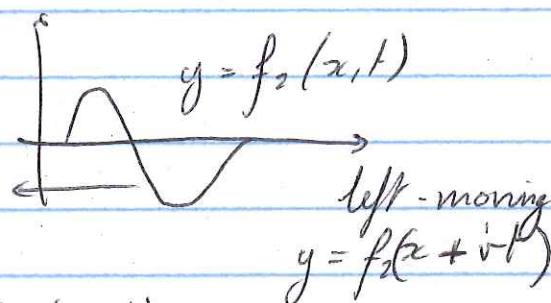 y = f₂(x,t)
left-moving
y = f₂(x + vt)